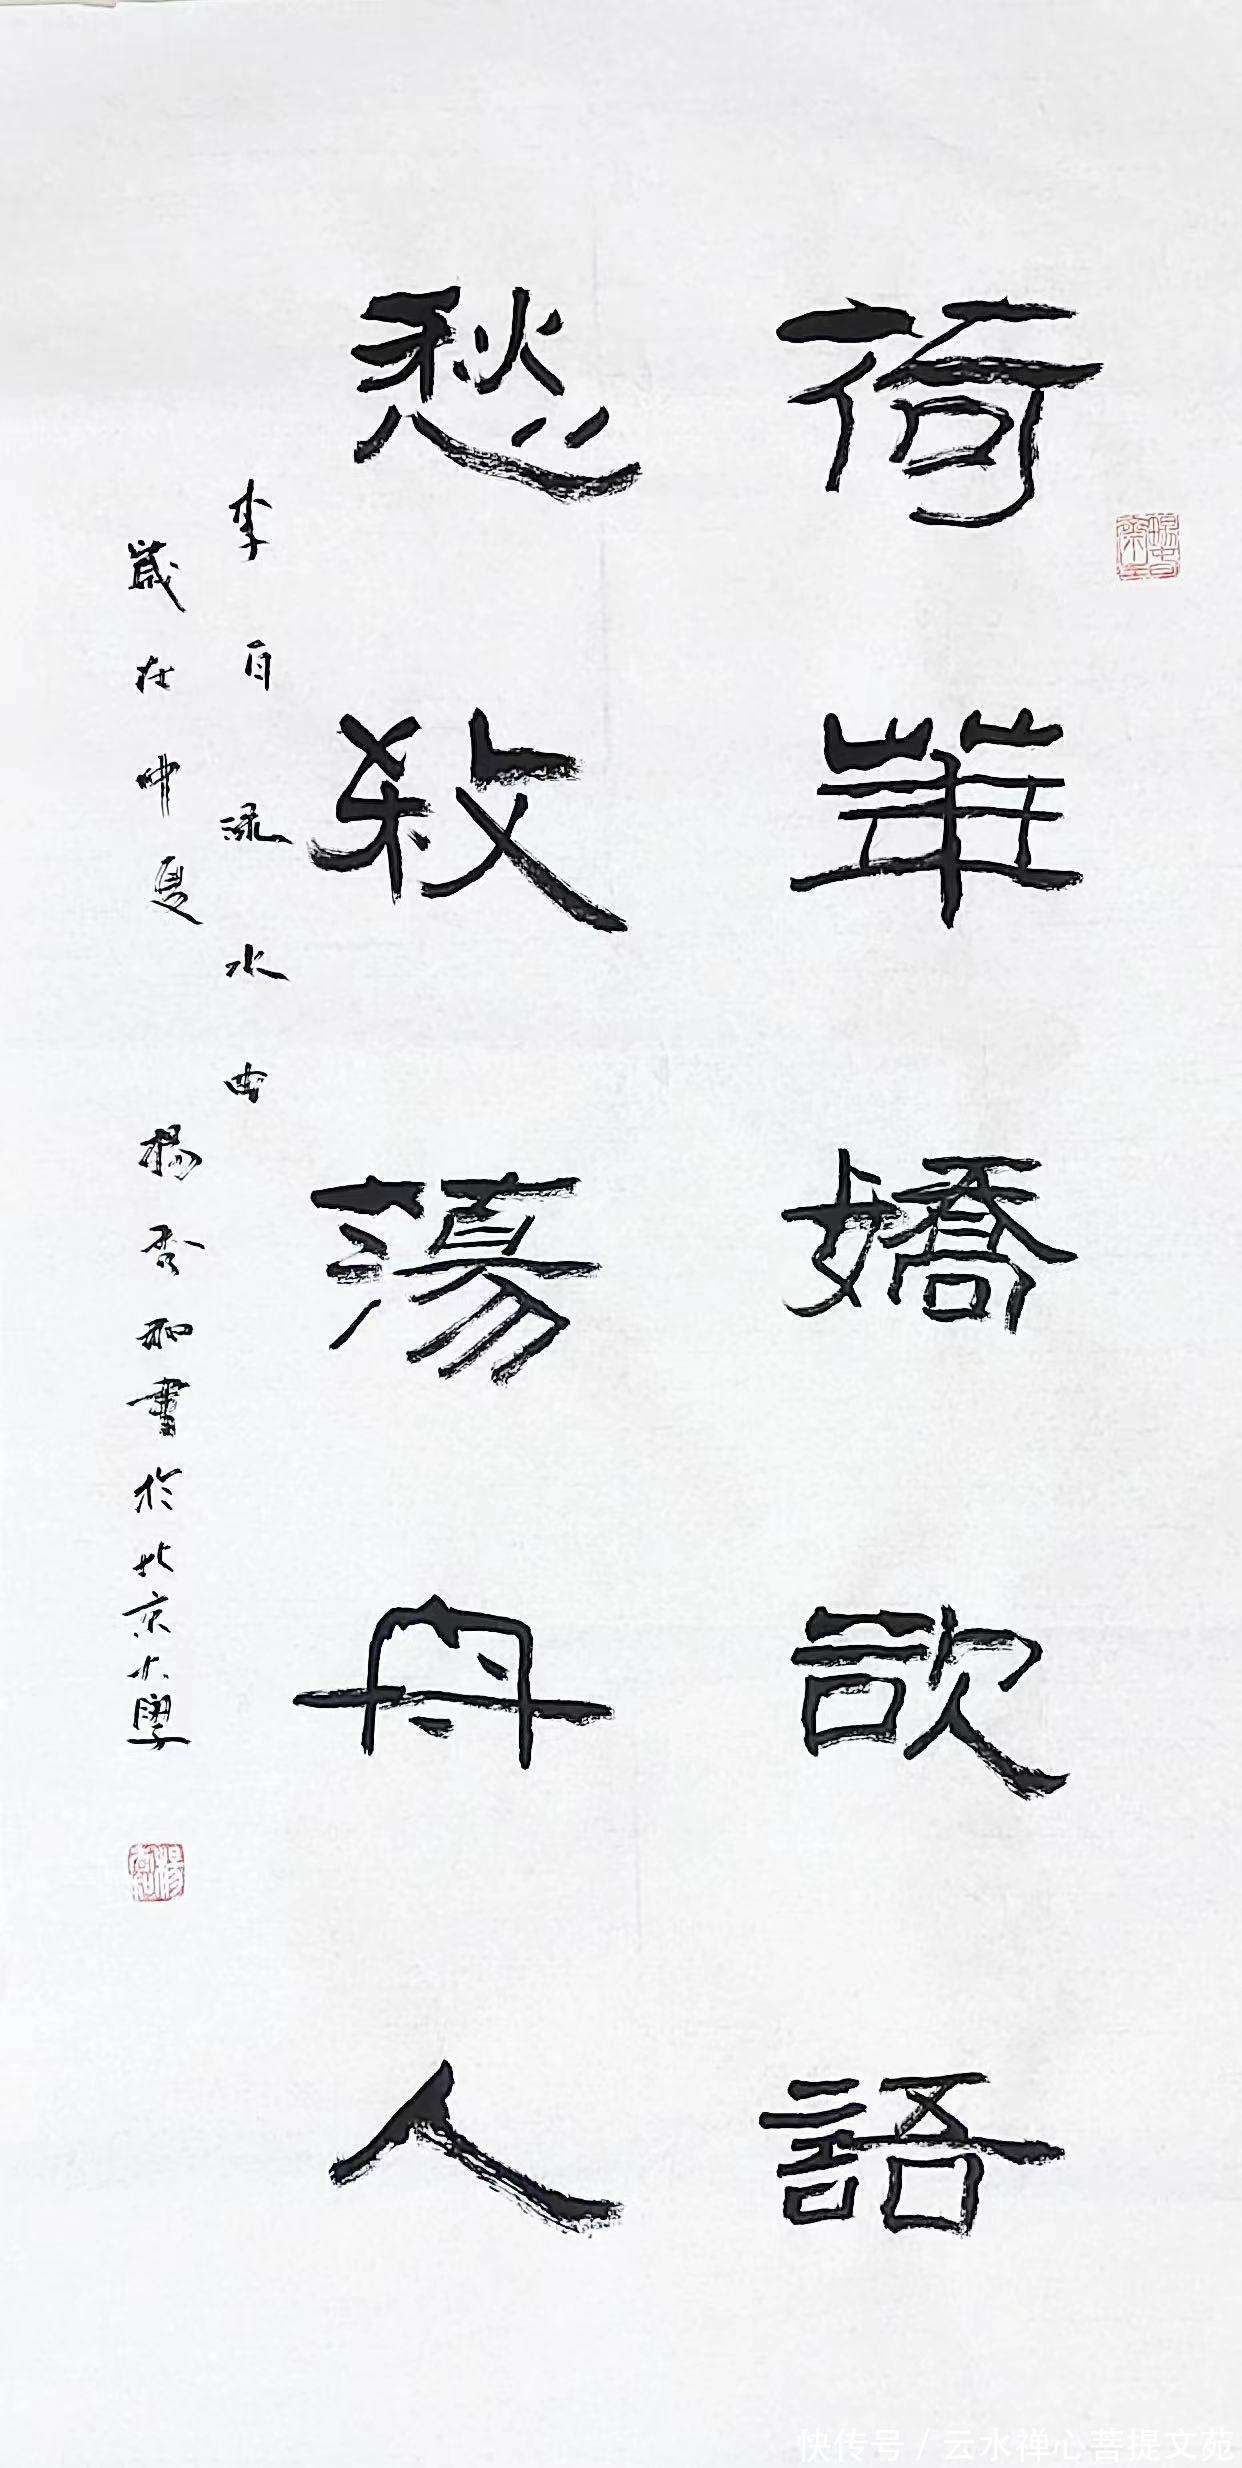 荷華嬌欲語
愁殺蕩舟人
李白淥水曲
歲在仲夏楊秀和書於北京大學
楊秀和
快传号 / 云水禅心菩提文苑